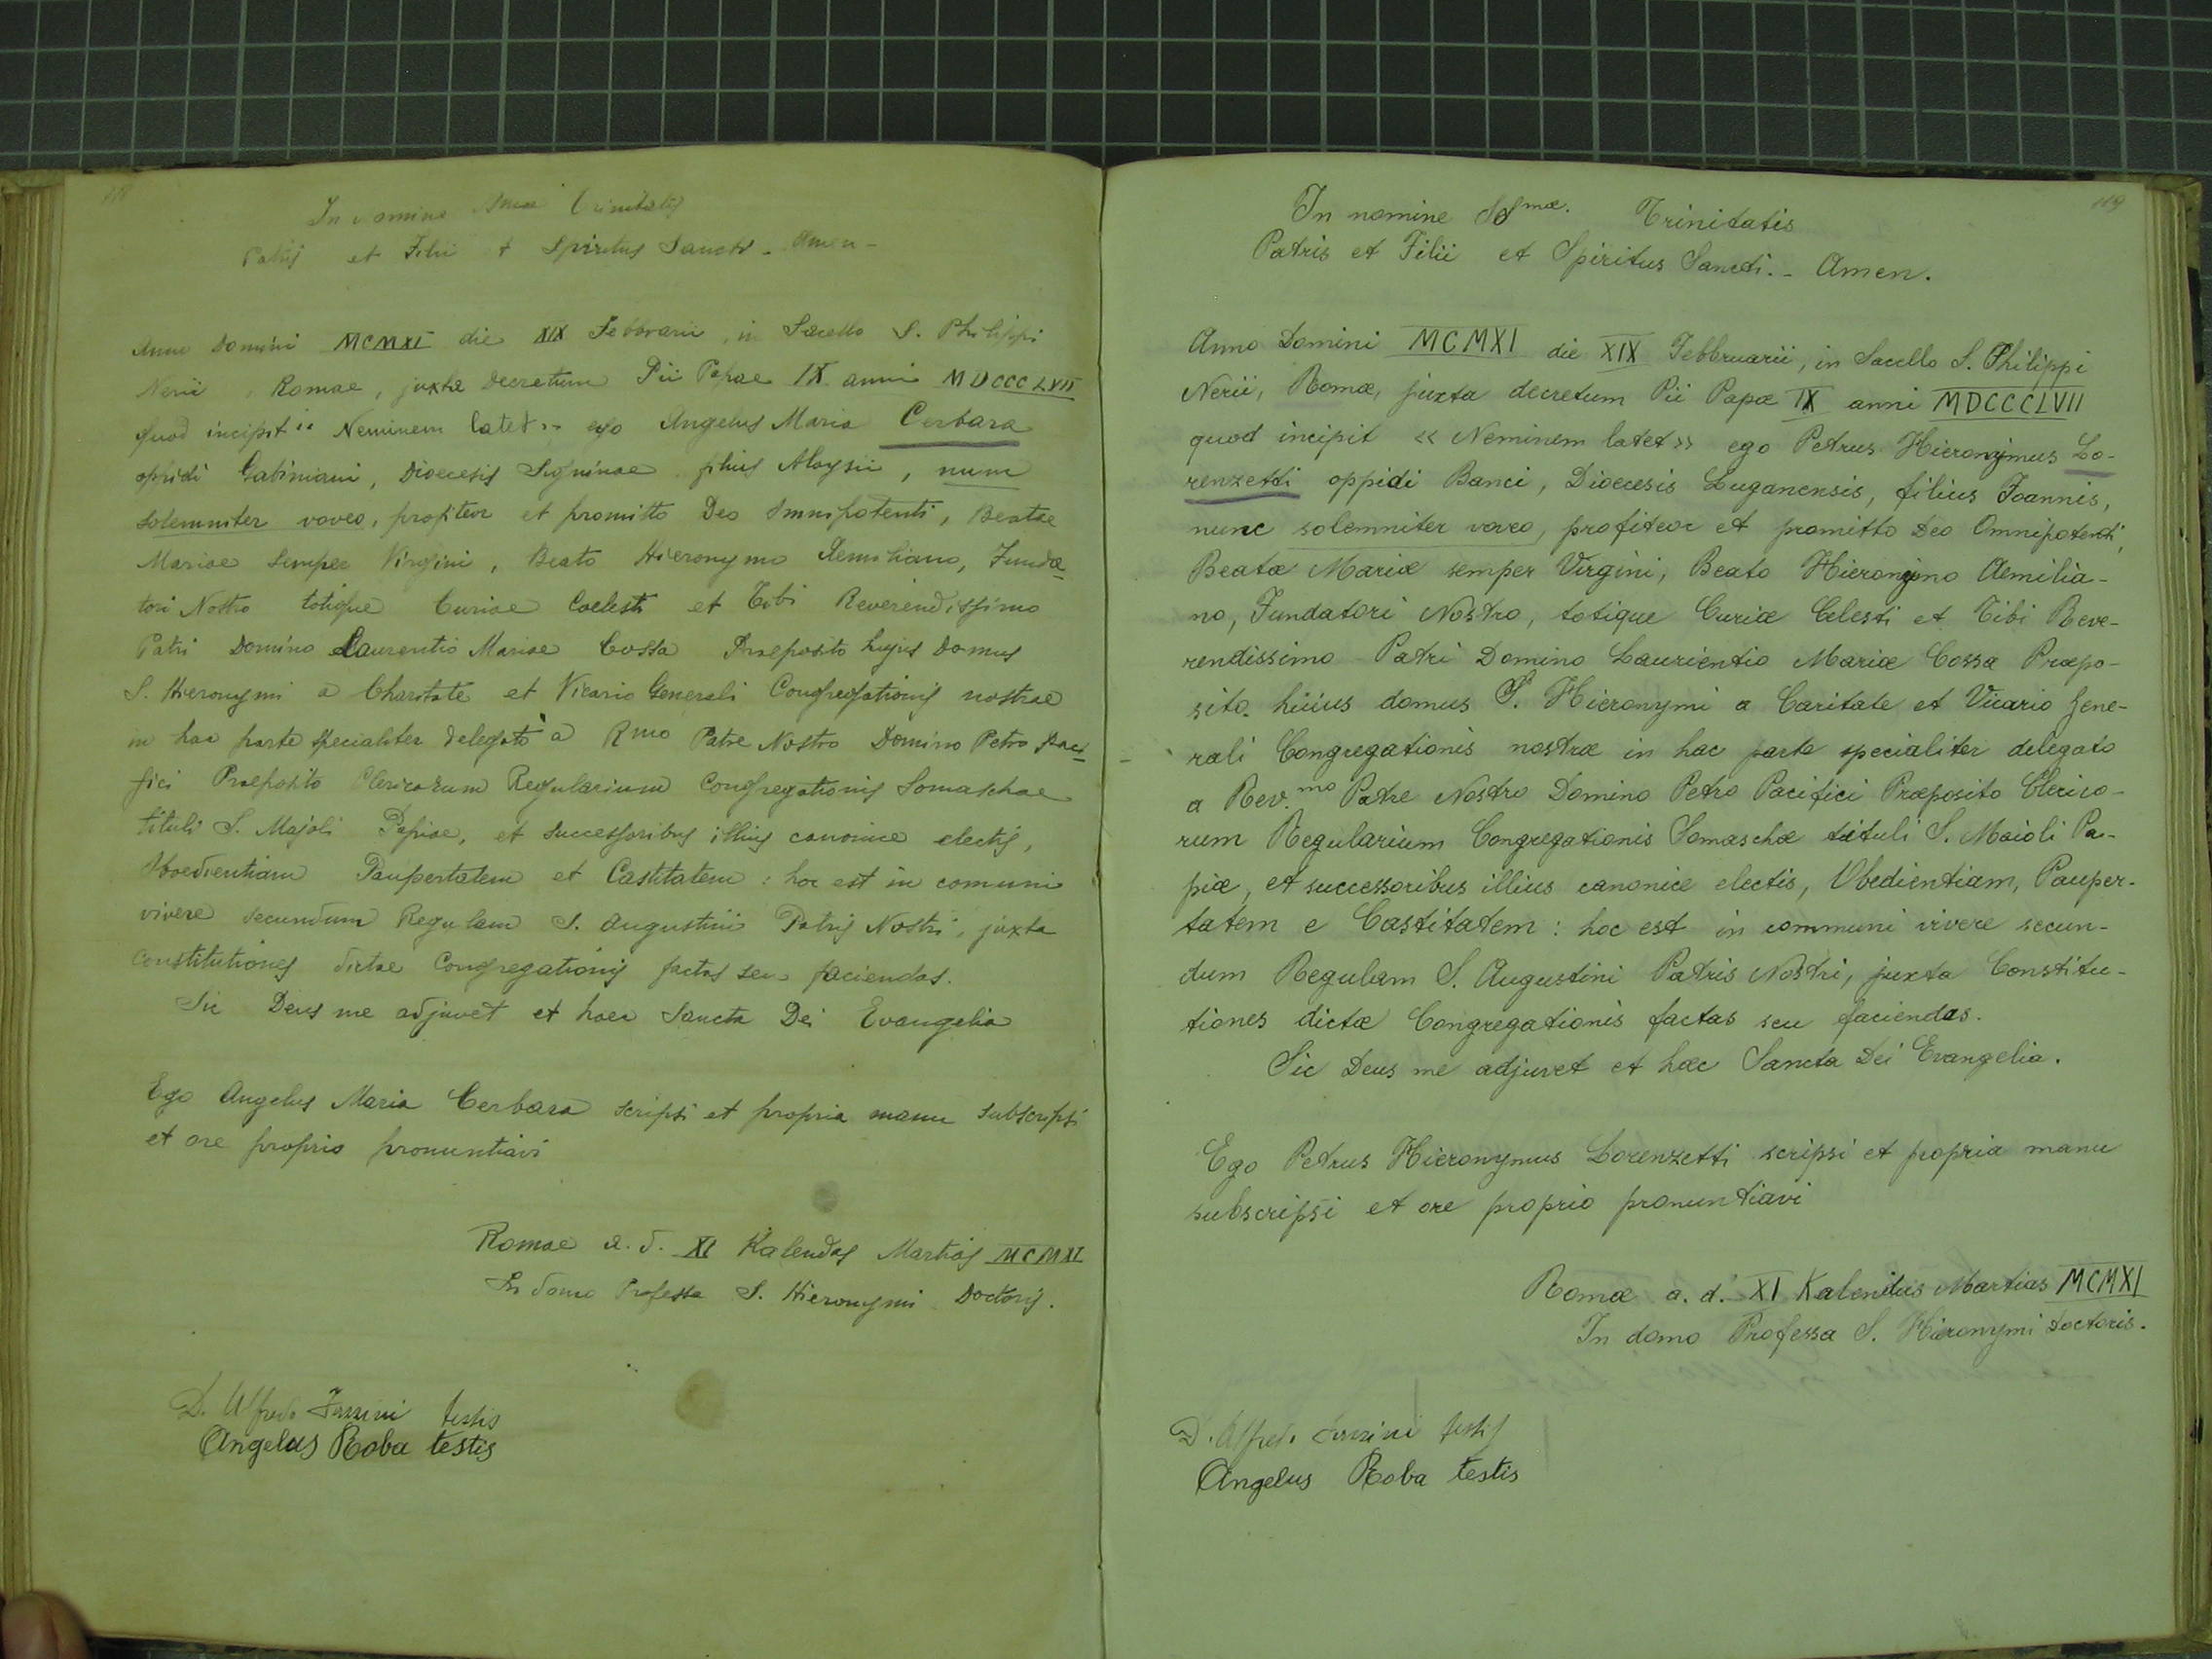 118
In nomine SSmae Trinitatis
Patris et Filii et Spiritus Sancti - Amen -
Anno Domini MCMXI die XIX Febbrarii, in Sacello S. Philippi
Nerii, Romae, juxta decretum Pii Papae IX anni MDCCCLVII
quod incipit " Neminem latet " ego Angelus Maria Cerbara
oppidi Gabiniani, Dioecesis Signinae filius Aloysii, nunc
solemniter voveo, profiteor et promitto Deo Omnipotenti, Beatae
Mariae semper Virgini, Beato Hieronymo Aemiliano, Funda-
tori Nostro totique Curiae Coelesti et Tibi Reverendissimo
Patri Domino Laurentio Mariae Cossa Praeposito hujus domus
S. Hieronymi a Charitate et Vicario Generali Congregationis nostrae
in hac parte specialiter delegato a Rmo Patre Nostro Domino Petro Paci-
fici Praeposito Clericorum Regularium Congregationis Somaschae
tituli S. Majoli Papiae, et successoribus illius canonice electis,
Oboedientiam Paupertatem et Castitatem : hoc est in comuni
vivere secundum Regulam S. Augustini Patris Nostri, juxta
Constitutiones dictae Congregationis factas seu faciendas.
Sic Deus me adjuvet et haec Sancta Dei Evangelia
Ego Angelus Maria Cerbara scripsi et propria manu subscripsi
et ore proprio pronuntiavi
Romae a. d. XI Kalendas Martias MCMXI
In domo Professa S. Hieronymi Doctoris.
D. Alfredo testis
Angelus Roba testis
119
In nomine SSmæ. Trinitatis
Patris et Filii et Spiritus Sancti. - Amen.
Anno Domini MCMXI die XIX Febbruarii, in Sacello S. Philippi
Nerii, Romæ, juxta decretum Pii Papæ IX anni MDCCCLVII
quod incipit « Neminem latet » ego Petrus Hieronymus Lo-
renzetti oppidi Banci, Dioecesis Luganensis, filius Joannis,
nunc solemniter voveo, profiteor et promitto Deo Omnipotenti,
Beatæ Mariæ semper Virgini, Beato Hieronymo Aemilia-
no, Fundatori Nostro, totique Curiæ Celesti et Tibi Reve-
rendissimo Patri Domino Laurientio Mariæ Cossa Præpo-
sito huius domus S. Hieronymi a Caritate et Vicario Gene-
rali Congregationis nostræ in hac parte specialiter delegato
a Rev.mo Patre Nostro Domino Petro Pacifici Præposito Clerico-
rum Regularium Congregationis Somaschæ tituli S. Maioli Pa-
piæ, et successoribus illius canonice electis, Obedientiam, Pauper-
tatem e Castitatem : hoc est in communi vivere secun-
dum Regulam S. Augustini Patris Nostri, juxta Constitu-
tiones dictæ Congregationis factas seu faciendas.
Sic Deus me adjuvet et hæc Sancta Dei Evangelia.
Ego Petrus Hieronymus Lorenzetti scripsi et propria manu
subscripsi et ore proprio pronuntiavi
Romæ a. d. XI Kalendas Martias MCMXI
In domo Professa S. Hieronymi Doctoris.
D. Alfredo testis
Angelus Roba testis